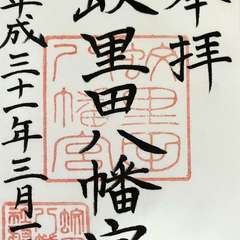 奉拝
蚊里田八幡宮
平成三十一年三月
蚊里田
八幡宮